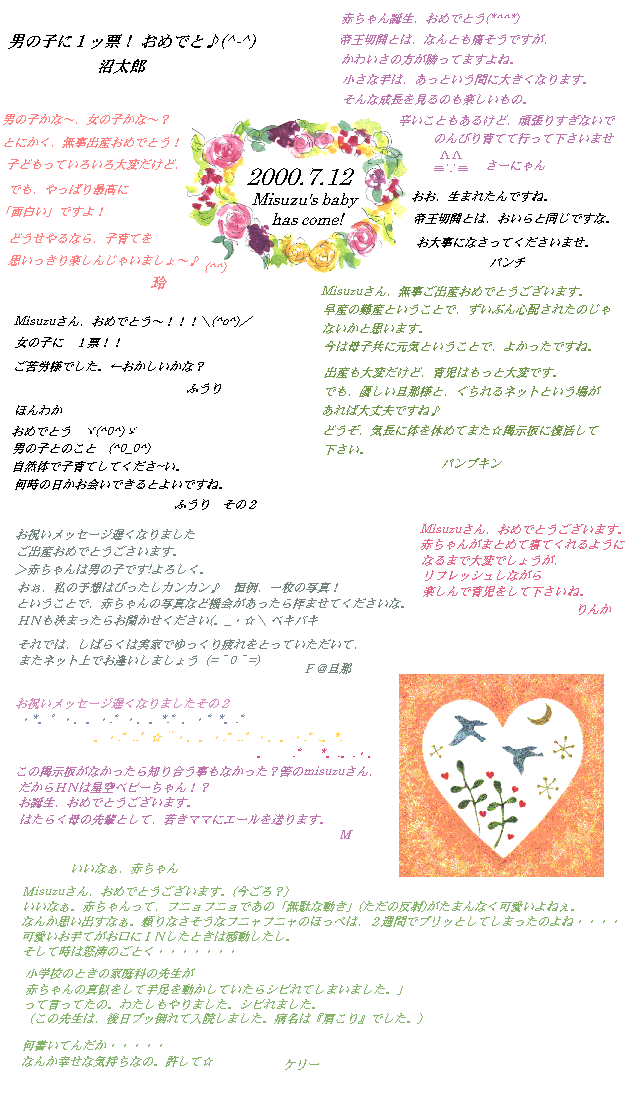 男の子に１ッ票！ おめでと♪(^-^)
沼太郎
赤ちゃん誕生、おめでとう(*^^*)
帝王切開とは、なんとも痛そうですが、
かわいさの方が勝ってますよね。
小さな手は、あっという間に大きくなります。
そんな成長を見るのも楽しいもの。
辛いこともあるけど、頑張りすぎないで
のんびり育てて行って下さいませ
さーにゃん
男の子かな～、女の子かな～？
とにかく、無事出産おめでとう！
子どもっていろいろ大変だけど、
でも、やっぱり最高に
「面白い」ですよ！
どうせやるなら、子育てを
思いっきり楽しんじゃいましょ～♪ (^^)
玲
2000.7.12
Misuzu's baby
has come!
おお、生まれたんですね。
帝王切開とは、おいらと同じですな。
お大事になさってくださいませ。
パンチ
Misuzuさん、無事ご出産おめでとうございます。
早産の難産ということで、ずいぶん心配されたのじゃ
ないかと思います。
今は母子共に元気ということで、よかったですね。
出産も大変だけど、育児はもっと大変です。
でも、優しい旦那様と、ぐられるネットという場が
あれば大丈夫ですね♪
どうぞ、気長に体を休めてまた☆掲示板に復活して
下さい。
パンプキン
Misuzuさん、おめでとう～！！！＼(^o^)／
女の子に　１票！！
ご苦労様でした。←おかしいかな？
ふうり
ほんわか
おめでとう　ヾ(^0^)ゞ
男の子とのこと　(^0_0^)
自然体で子育てしてくださ~い。
何時の日かお会いできるとよいですね。
ふうり　その２
お祝いメッセージ遅くなりました
ご出産おめでとうございます。
＞赤ちゃんは男の子です!よろしく。
おぉ、私の予想はぴったしカンカン♪　恒例、一枚の写真！
ということで、赤ちゃんの写真など機会があったら拝ませてくださいな。
ＨＮも決まったらお聞かせください(。_・☆＼ ベキバキ
それでは、しばらくは実家でゆっくり疲れをとっていただいて、
またネット上でお逢いしましょう (=￣０￣=)
Ｆ＠旦那
Misuzuさん、おめでとうございます。
赤ちゃんがまとめて寝てくれるように
なるまで大変でしょうが、
リフレッシュしながら
楽しんで育児をして下さいね。
りんか
お祝いメッセージ遅くなりましたその２
この掲示板がなかったら知り合う事もなかった？筈のmisuzuさん、
だからＨＮは星空ベビーちゃん！？
お誕生、おめでとうございます。
はたらく母の先輩として、若きママにエールを送ります。
M
いいなぁ、赤ちゃん
Misuzuさん、おめでとうございます。(今ごろ？)
いいなぁ。赤ちゃんって、フニョフニョであの「無駄な動き」(ただの反射)がたまんなく可愛いよねぇ。
なんか思い出すなぁ。頼りなさそうなフニャフニャのほっぺは、２週間でプリッとしてしまったのよね・・・・
可愛いお手てがお口にＩＮしたときは感動したし。
そして時は怒涛のごとく・・・・・・・
小学校のときの家庭科の先生が
赤ちゃんの真似をして手足を動かしていたらシビれてしまいました。」
って言ってたの。わたしもやりました。シビれました。
（この先生は、後日ブッ倒れて入院しました。病名は『肩こり』でした。）
何書いてんだか・・・・・
なんか幸せな気持ちなの。許して☆
ケリー